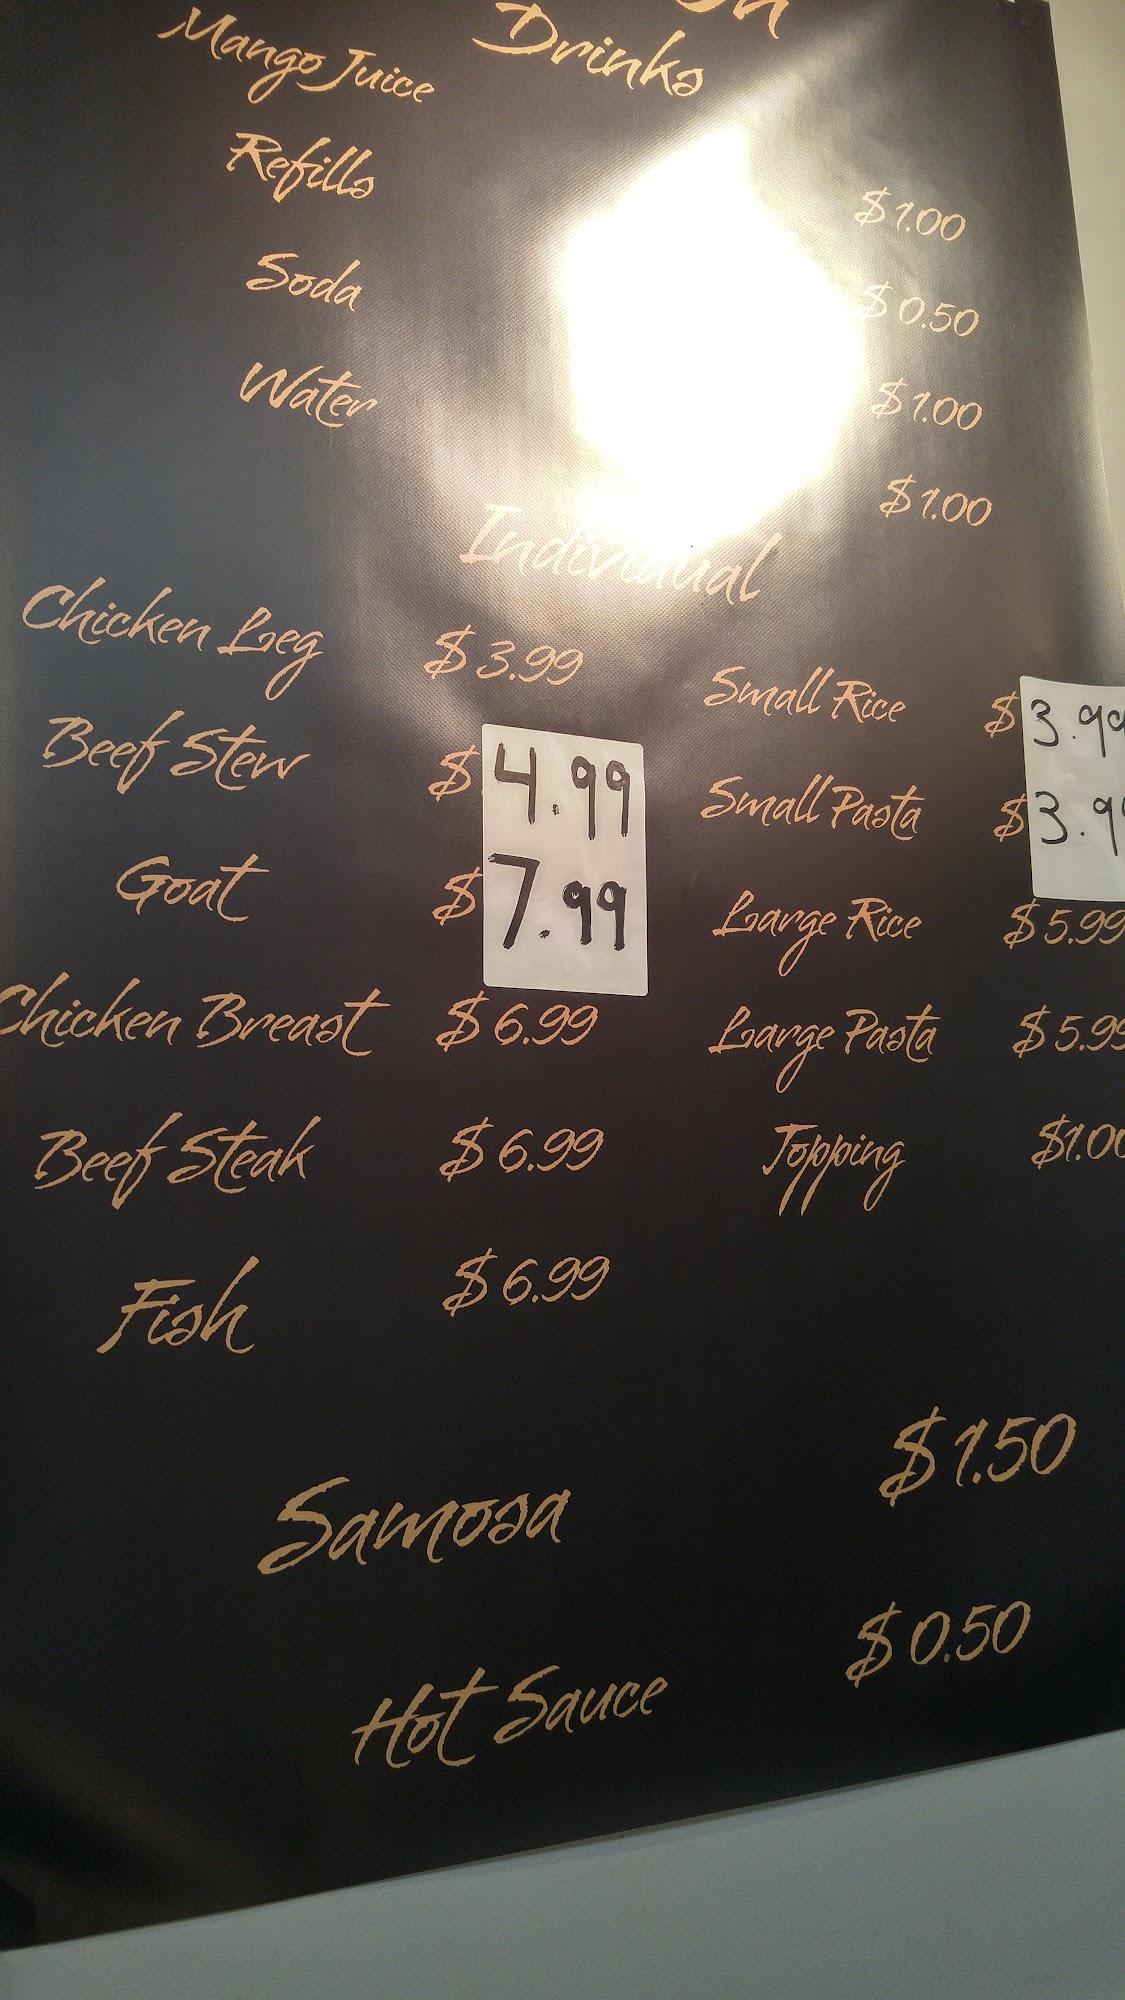 Drinks
Mango Juice $1.00
Refills $0.50
Soda $1.00
Water $1.00
Individual
Chicken Leg $3.99
Beef Stew $4.99
Goat $7.99
Chicken Breast $6.99
Beef Steak $6.99
Fish $6.99
Small Rice $3.99
Small Pasta $3.99
Large Rice $5.99
Large Pasta $5.99
Topping $1.00
Samosa $1.50
Hot Sauce $0.50